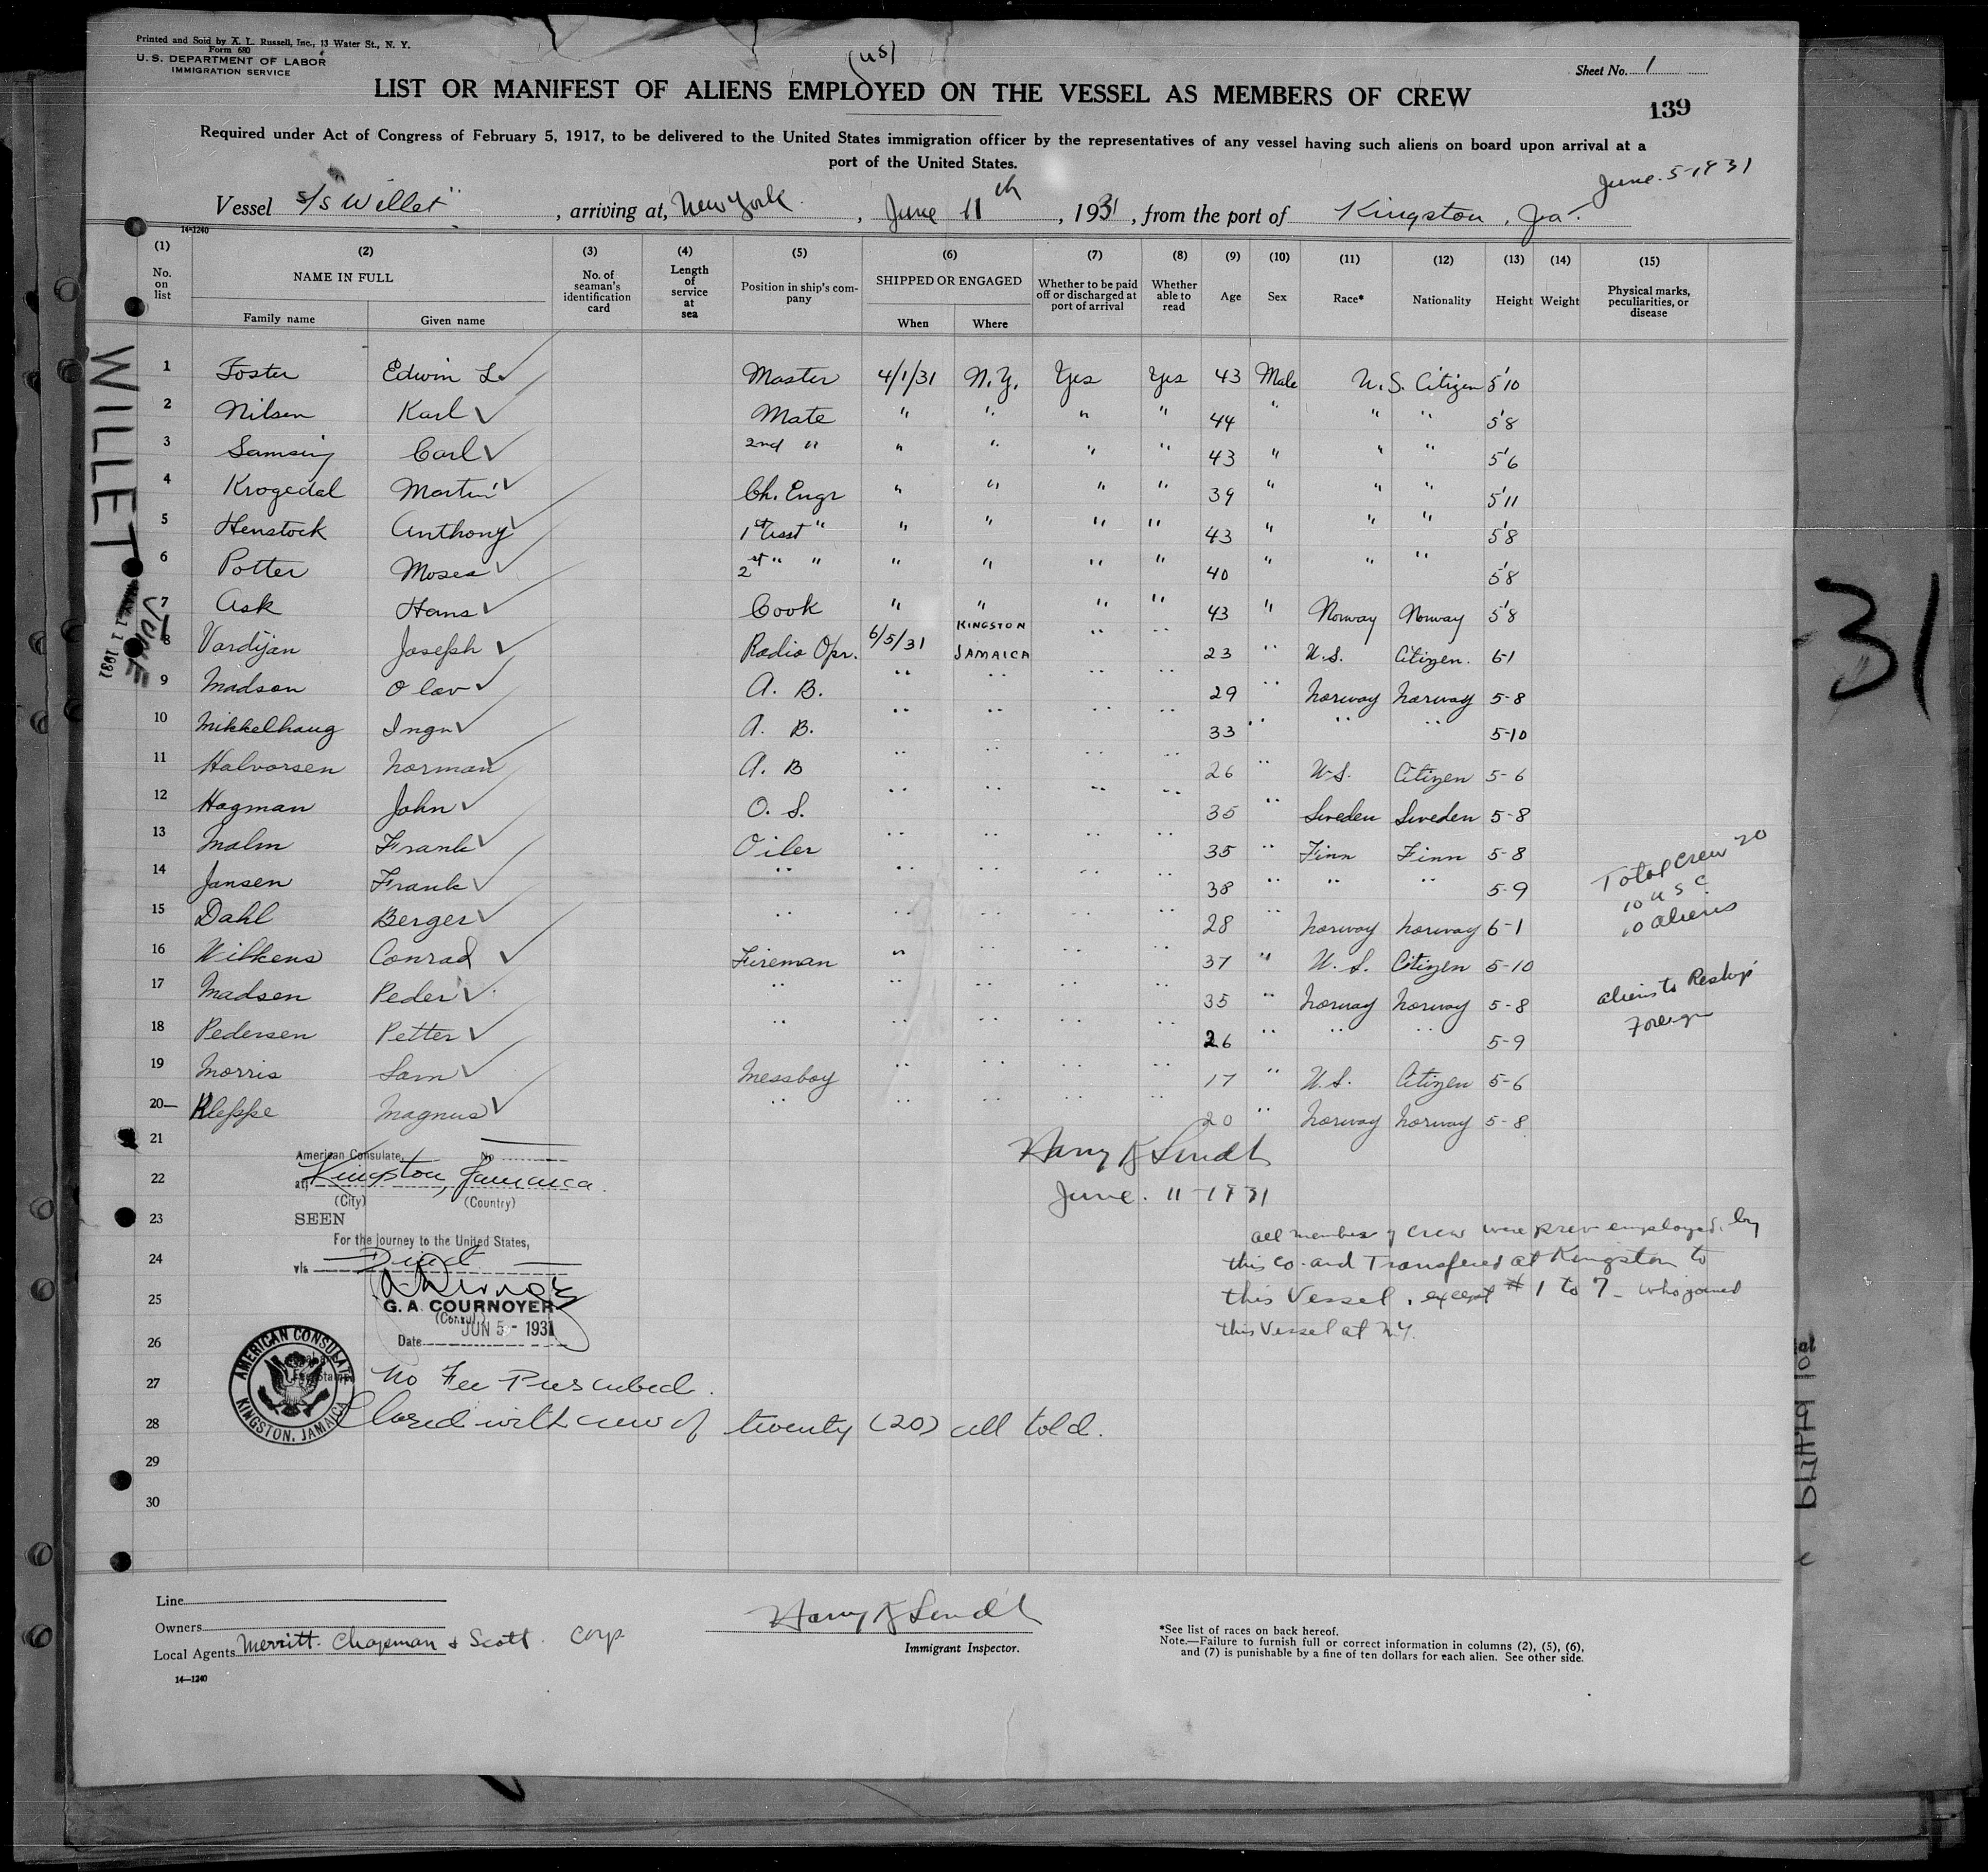 Printed and Sold by A. L. Russell, Inc., 13 Water St., N. Y.
Form 680
U. S. DEPARTMENT OF LABOR
IMMIGRATION SERVICE
(US)
Sheet No. 1
LIST OR MANIFEST OF ALIENS EMPLOYED ON THE VESSEL AS MEMBERS OF CREW
139
Required under Act of Congress of February 5, 1917, to be delivered to the United States immigration officer by the representatives of any vessel having such aliens on board upon arrival at a
port of the United States.
June. 5-1931
Vessel S/S Willet, arriving at, New York, June 11th, 1931, from the port of Kingston, Ja.
14-1240
(1) (2) (3) (4) (5) (6) (7) (8) (9) (10) (11) (12) (13) (14) (15)
No. on list NAME IN FULL Family name Given name No. of seaman's identification card Length of service at sea Position in ship's company SHIPPED OR ENGAGED When Where Whether to be paid off or discharged at port of arrival Whether able to read Age Sex Race* Nationality Height Weight Physical marks, peculiarities, or disease
1 Foster Edwin L. Master 4/1/31 N.Y. Yes Yes 43 Male U.S. Citizen 5'10
2 Nilsen Karl Mate " " " " 44 " " " 5'8
3 Samsing Carl 2nd " " " " " 43 " " " 5'6
4 Krogedal Martin Ch. Engr " " " " 39 " " " 5'11
5 Henstock Anthony 1st Asst " " " " " 43 " " " 5'8
6 Potter Moses 2 " " " " " " 40 " " " 5'8
7 Ask Hans Cook " " " " 43 " Norway Norway 5'8
8 Vardijan Joseph Radio Opr. 6/5/31 KINGSTON JAMAICA " " 23 " U.S. Citizen. 6-1
9 Madson Olav A. B. " " " " 29 " Norway Norway 5-8
10 Mikkelhaug Ingv A. B. " " " " 33 " " " 5-10
11 Halvorsen Norman A. B " " " " 26 " U.S. Citizen 5-6
12 Hagman John O. S. " " " " 35 " Sweden Sweden 5-8
13 Malm Frank Oiler " " " " 35 " Finn Finn 5-8
14 Jansen Frank " " " " " 38 " " " 5-9
15 Dahl Berger " " " " " 28 " Norway Norway 6-1
16 Wilkens Conrad Fireman " " " " 37 " U.S. Citizen 5-10
17 Madsen Peder " " " " " 35 " Norway Norway 5-8
18 Pedersen Petter " " " " " 26 " " " 5-9
19 Morris Sam Messboy " " " " 17 " U.S. Citizen 5-6
20 Kleppe Magnus " " " " " 20 " Norway Norway 5-8
Total Crew 20
10 U S C.
10 aliens
aliens to Reship
Foreign
21
22
23
24
25
26
27
28
29
30
American Consulate, No
at Kingston, Jamaica.
(City) (Country)
SEEN
For the journey to the United States,
via Direct
G. A. COURNOYER
(Consul)
Date JUN 5 - 1931
AMERICAN CONSULATE
KINGSTON, JAMAICA
No Fee Prescribed.
Closed with crew of twenty (20) all told.
June. 11-1931
all members of crew were prev employed. by
this co. and Transfered at Kingston to
this Vessel, except # 1 to 7 - who joined
this Vessel at N.Y.
WILLET
JUNE
11 1931
31
Line
Owners
Local Agents Merritt-Chapman & Scott Corp.
Immigrant Inspector.
*See list of races on back hereof.
Note.—Failure to furnish full or correct information in columns (2), (5), (6),
and (7) is punishable by a fine of ten dollars for each alien. See other side.
14—1240